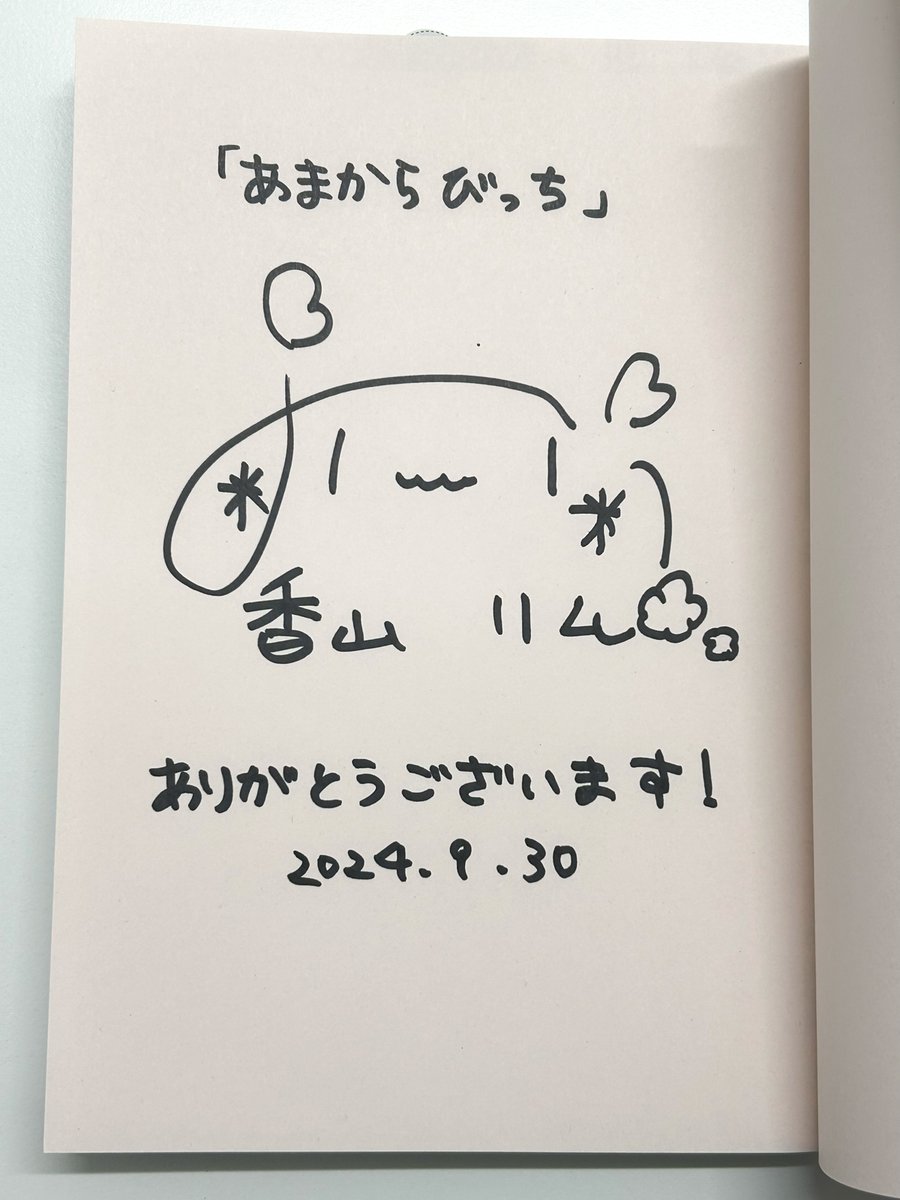 「あまからびっち」
香山 リム
ありがとうございます!
2024.9.30